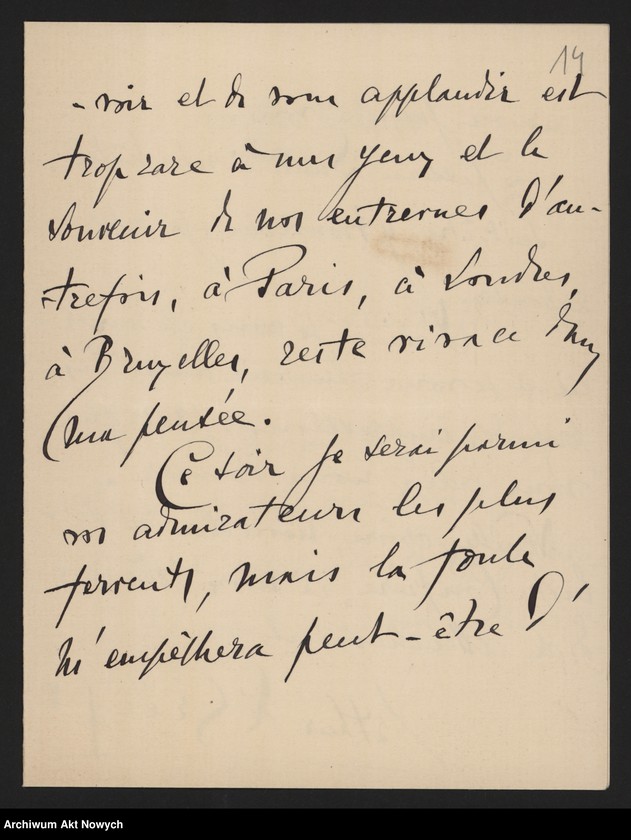 14
-voir et de vous applaudir est
trop rare à mes yeux et le
souvenir de nos entrevues d'au-
trefois, à Paris, à Londres,
à Bruxelles, reste vivace dans
ma pensée.
Ce soir je serai parmi
vos admirateurs les plus
fervents, mais la foule
m'empêchera peut-être d'
Archiwum Akt Nowych